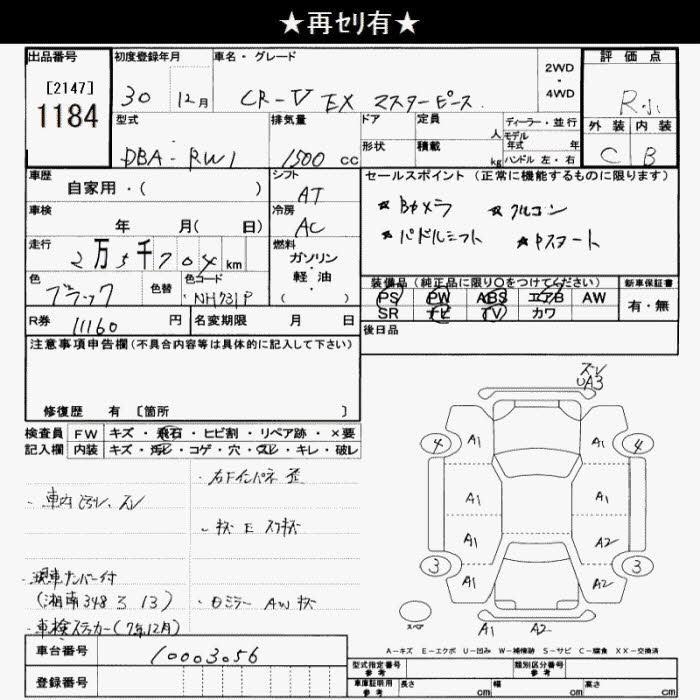 ★再セリ有★
出品番号
[2147]
1184
初度登録年月
30 12月
車名・グレード
CR-V EX マスターピース
2WD
・
4WD
評価点
R小
外装 内装
C B
型式
DBA-RW1
排気量
1500 cc
ドア
定員
人
ディーラー・並行
モデル
年式 年
形状
積載
kg
ハンドル 左・右
車歴
自家用・( )
シフト
AT
セールスポイント (正常に機能するものに限ります)
★Bカメラ ★クルコン
★パドルシフト ★Pスタート
車検
年 月( 日)
冷房
AC
走行
2万5千704 km
燃料
ガソリン
・
軽油
・
( )
色
ブラック
色替
色コード
NH731P
装備品 (純正品に限り○をつけてください)
PS PW ABS エアB AW
SR ナビ TV カワ
新車保証書
有・無
R券 11160 円
名変期限 月 日
後日品
注意事項申告欄(不具合内容等は具体的に記入して下さい)
修復歴 有 [箇所 ]
検査員 FW キズ・飛石・ヒビ割・リペア跡・×要
記入欄 内装 キズ・汚レ・コゲ・穴・スレ・キレ・破レ
・右Fインパネ歪
・車内ヨゴレ、スレ
・現車ナンバー付
(湘南348 ろ 13)
・車検ステッカー(7年12月)
・ロミラー AW
ズレ
UA3
4 A1 A1 4
A1 A1
A1 A2
3 A1 A2 3
スペア
A1 A2
A-キズ E-エクボ U-凹み W-補修跡 S-サビ C-腐食 XX-交換済
車台番号 10003056
登録番号
型式指定番号
参考
類別区分番号
参考
車庫証明用
参考
長さ cm 幅 cm 高さ cm